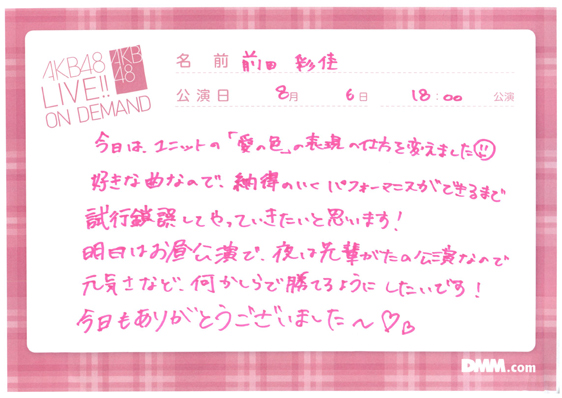 AKB48
LIVE!!
ON DEMAND
AKB
48
名 前 前田 彩佳
公演日 8月 6日 18:00 公演
今日は、ユニットの「愛の色」の表現の仕方を変えました
好きな曲なので、納得のいくパフォーマンスができるまで
試行錯誤してやっていきたいと思います!
明日はお昼公演で、夜は先輩がたの公演なので
元気さなど、何かしらで勝てるようにしたいです!
今日もありがとうございました〜♡
DMM.com